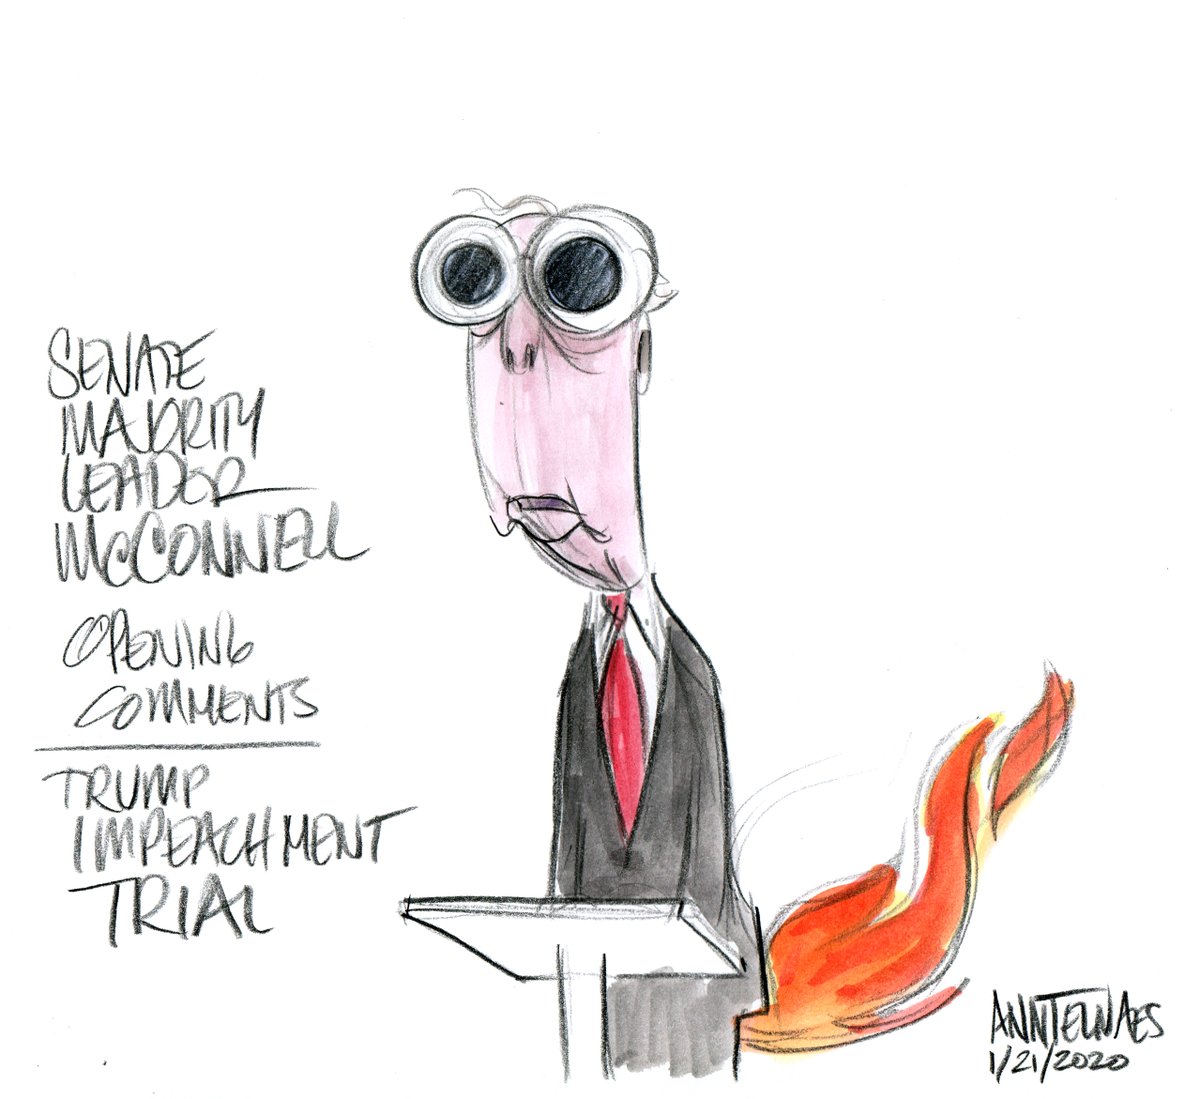 SENATE
MAJORITY
LEADER
McCONNELL
OPENING
COMMENTS
TRUMP
IMPEACHMENT
TRIAL
ANNTELNAES
1/21/2020